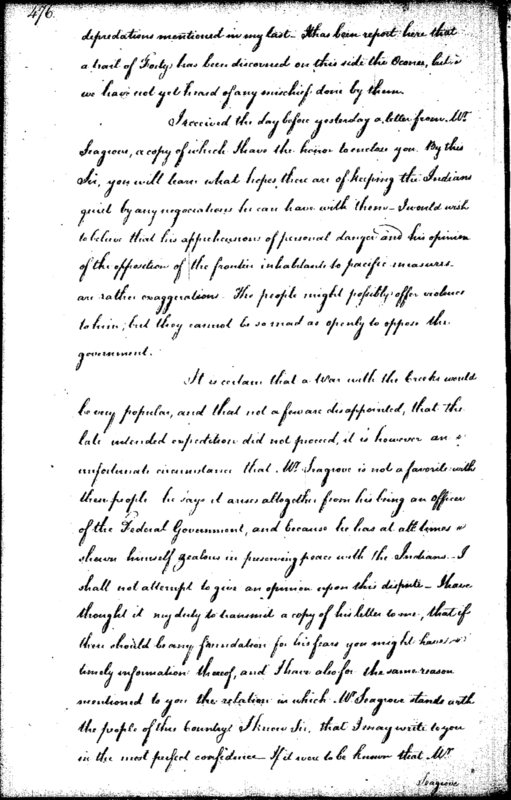 476.
depredations mentioned in my last – It has been report here that
a trail of Forty has been discovered on this side the Oconee, but
we have not yet heard of any mischief done by them.
I received the day before yesterday a letter from Mr.
Seagrove, a copy of which I have the honor to enclose you. By this
Sir, you will learn what hopes there are of keeping the Indians
quiet by any negociations he can have with them – I would wish
to believe that his apprehensions of personal danger and his opinion
of the opposition of the frontier inhabitants to pacific measures
are rather exaggerations. The people might possibly offer violence
to him; but they cannot be so mad as openly to oppose the
government.
It is certain that a War with the Creeks would
be very popular, and that not a few are disappointed, that the
late intended expedition did not proceed, it is however an
unfortunate circumstance that Mr. Seagrove is not a favorite with
these people he says it arises altogether from his being an officer
of the Federal Government, and because he has at all times
shewn himself zealous in preserving peace with the Indians – I
shall not attempt to give an opinion upon this dispute – I have
thought it my duty to transmit a copy of his letter to me, that if
there should be any foundation for his fears you might have
timely information thereof, and I have also for the same reason
mentioned to you the relation in which Mr. Seagrove stands with
the people of this Country. I know Sir, that I may write to you
in the most perfect confidence – If it were to be known that Mr.
Seagrove